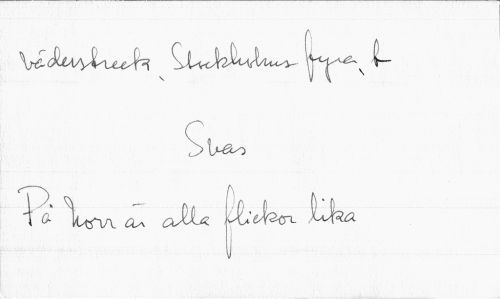 väderstreck, Stockholms fyra, t
Svas
På norr är alla flickor lika